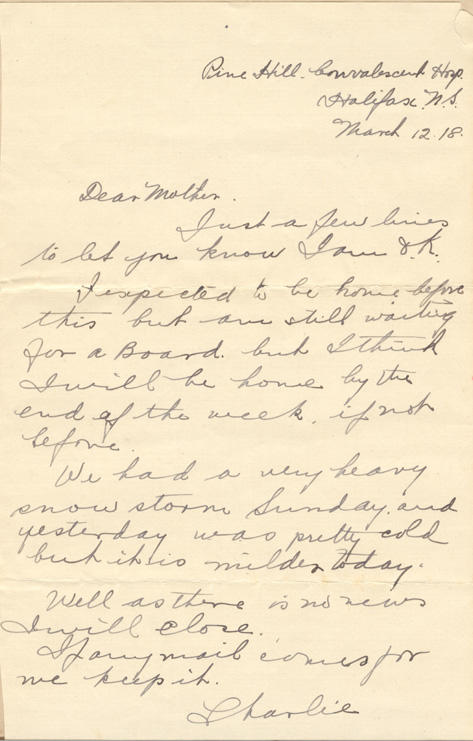 Pine Hill. Convalescent Hosp
Halifax. N.S.
March 12.18.
Dear Mother.
Just a few lines
to let you know I am O.K.
I expected to be home before
this but am still waiting
for a Board. but I think
I will be home by the
end of the week, if not
before.
We had a very heavy
snow storm Sunday, and
yesterday was pretty cold
but it is milder today.
Well as there is no news
I will close.
If any mail comes for
me keep it.
Charlie